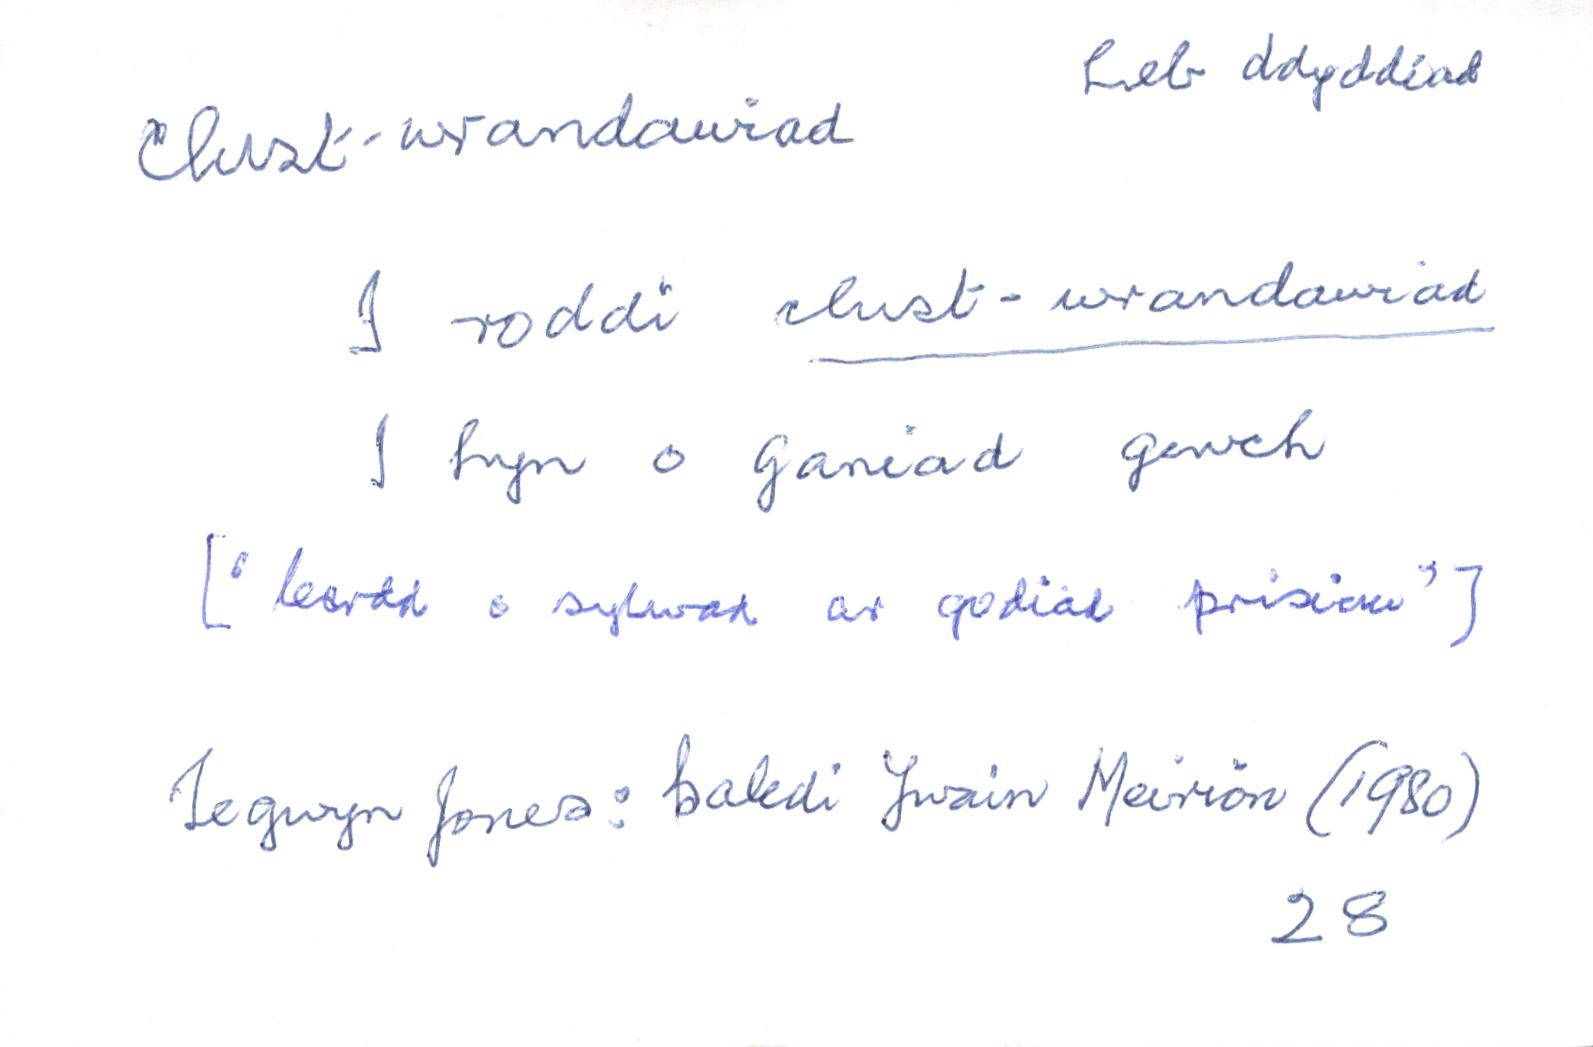 heb ddyddiad
Clust-wrandawiad
I roddi clust-wrandawiad
I hyn o ganiad gewch
["cerdd o sylwad ar godiad prisiau"]
Tegwyn Jones: Baledi Ywain Meirion (1980)
28